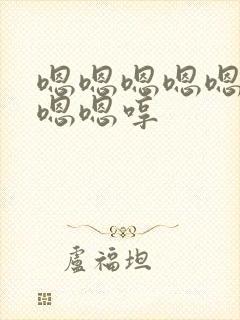 嗯嗯嗯嗯嗯
嗯嗯哼
盧福坦